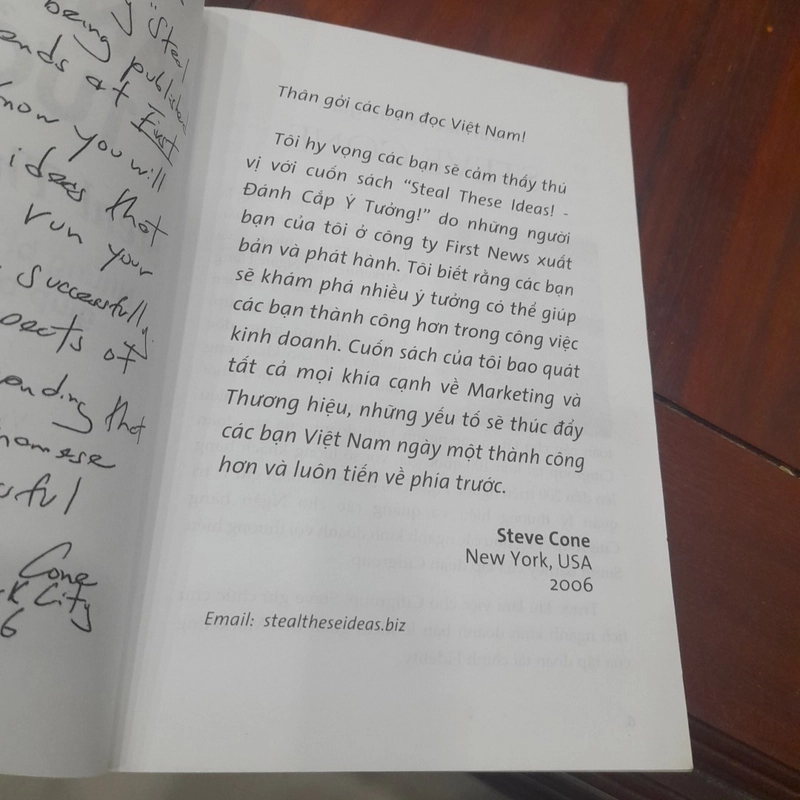 "Steal
being published
at First
now you will
ideas that
run your
successfully.
of
that
Cone
City
6
Thân gởi các bạn đọc Việt Nam!
Tôi hy vọng các bạn sẽ cảm thấy thú
vị với cuốn sách "Steal These Ideas! -
Đánh Cắp Ý Tưởng!" do những người
bạn của tôi ở công ty First News xuất
bản và phát hành. Tôi biết rằng các bạn
sẽ khám phá nhiều ý tưởng có thể giúp
các bạn thành công hơn trong công việc
kinh doanh. Cuốn sách của tôi bao quát
tất cả mọi khía cạnh về Marketing và
Thương hiệu, những yếu tố sẽ thúc đẩy
các bạn Việt Nam ngày một thành công
hơn và luôn tiến về phía trước.
Steve Cone
New York, USA
2006
Email: stealtheseideas.biz